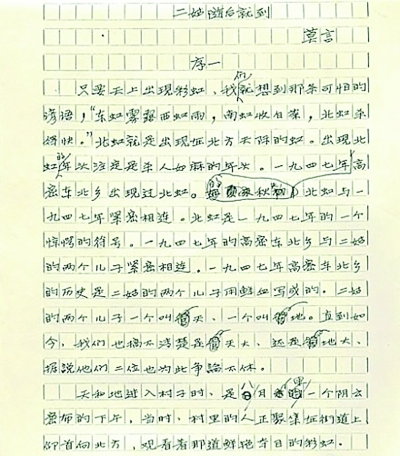 二姑随后就到
莫言
序一
只要天上出现彩虹，我们就想到那条可怕的
谚语：“东虹雾露西虹雨，南虹收白菜，北虹杀
得快。”北虹就是出现在北方天际的虹。出现北
虹的年次注定是杀人如麻的年次。一九四七年高
密东北乡出现过北虹。北虹与一
九四七年紧密相连。北虹是一九四七年的一个
惊惧的符号。一九四七年的高密东北乡与二姑
的两个儿子紧密相连。一九四七年高密东北乡
的历史是二姑的两个儿子用鲜血写成的。二姑
的两个儿子一个叫天，一个叫地。直到如
今，我们也搞不清楚是天大，还是地大，
据说他们二位也为此争论不休。
天和地进入村子时，是月里的一个阴云
密布的下午，当时，村里的人正聚集在街道上
仰首向北方，观看着那道鲜艳夺目的彩虹。